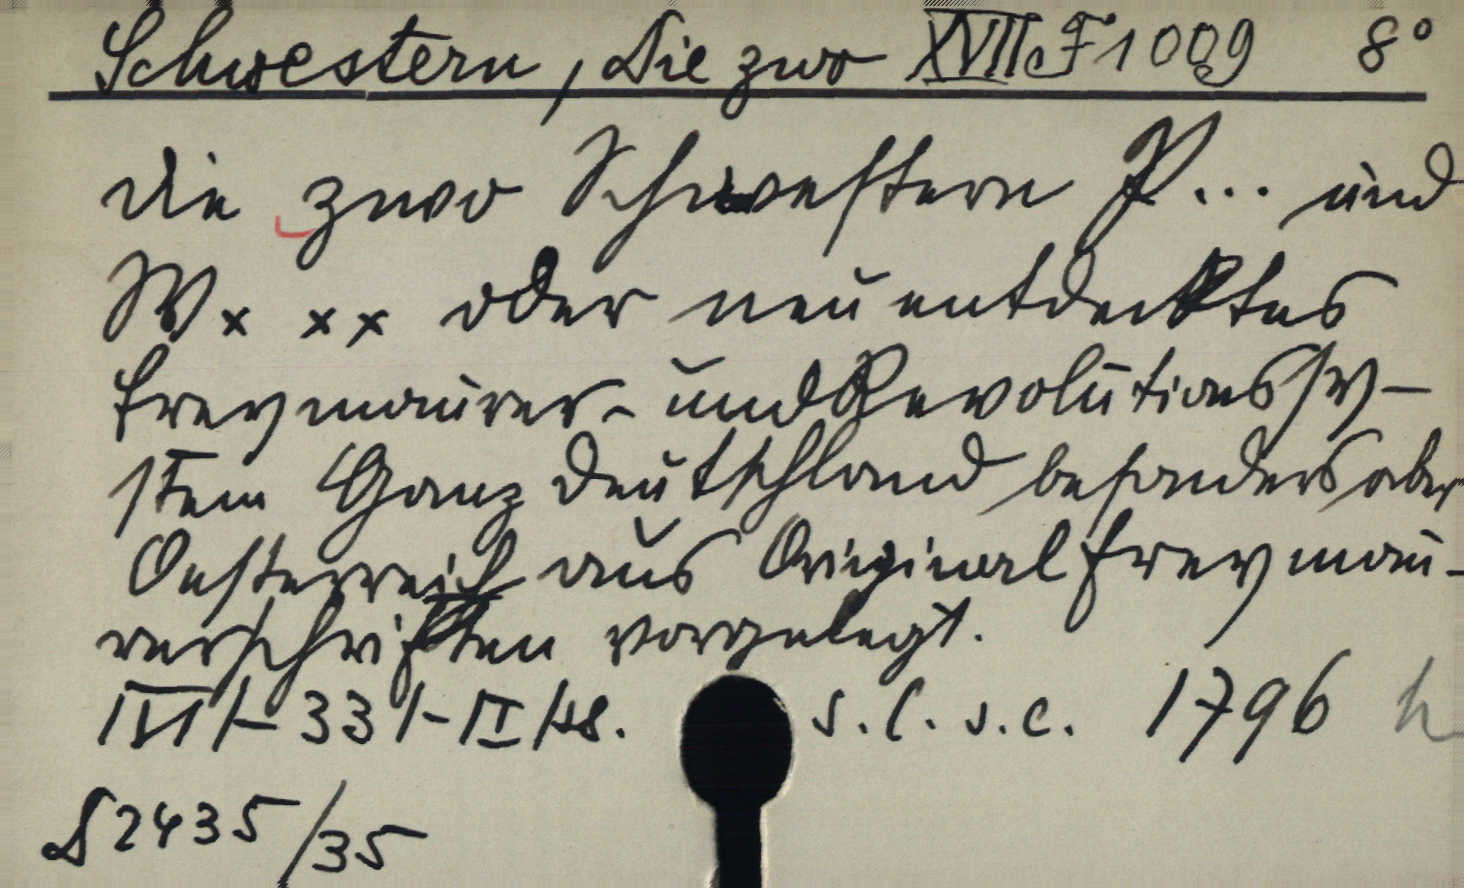 Schwestern, Die zwo XVII F 1009 8°
Die zwo Schwestern P... und
W× ×× oder neuentdecktes
Freymaurer- und Revolutionssy-
stem Ganz Deutschland besonders aber
Oesterreich aus Originalfreymau-
rerschriften vorgelegt.
IV + 33 + II SS. s.l. s.c. 1796
S 2435/35